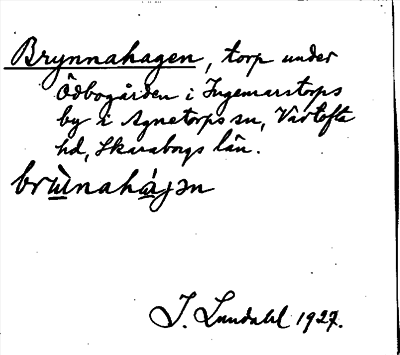 Brynnahagen, torp under
Ödbogården i Ingemarstorps
by i Agnetorps sn, Vartofta
hd, Skaraborgs län.
brùnahágən
I. Lundahl 1927.